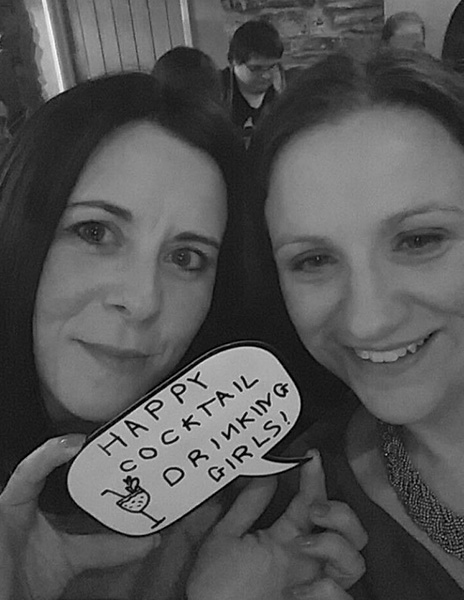 HAPPY
COCKTAIL
DRINKING
GIRLS!